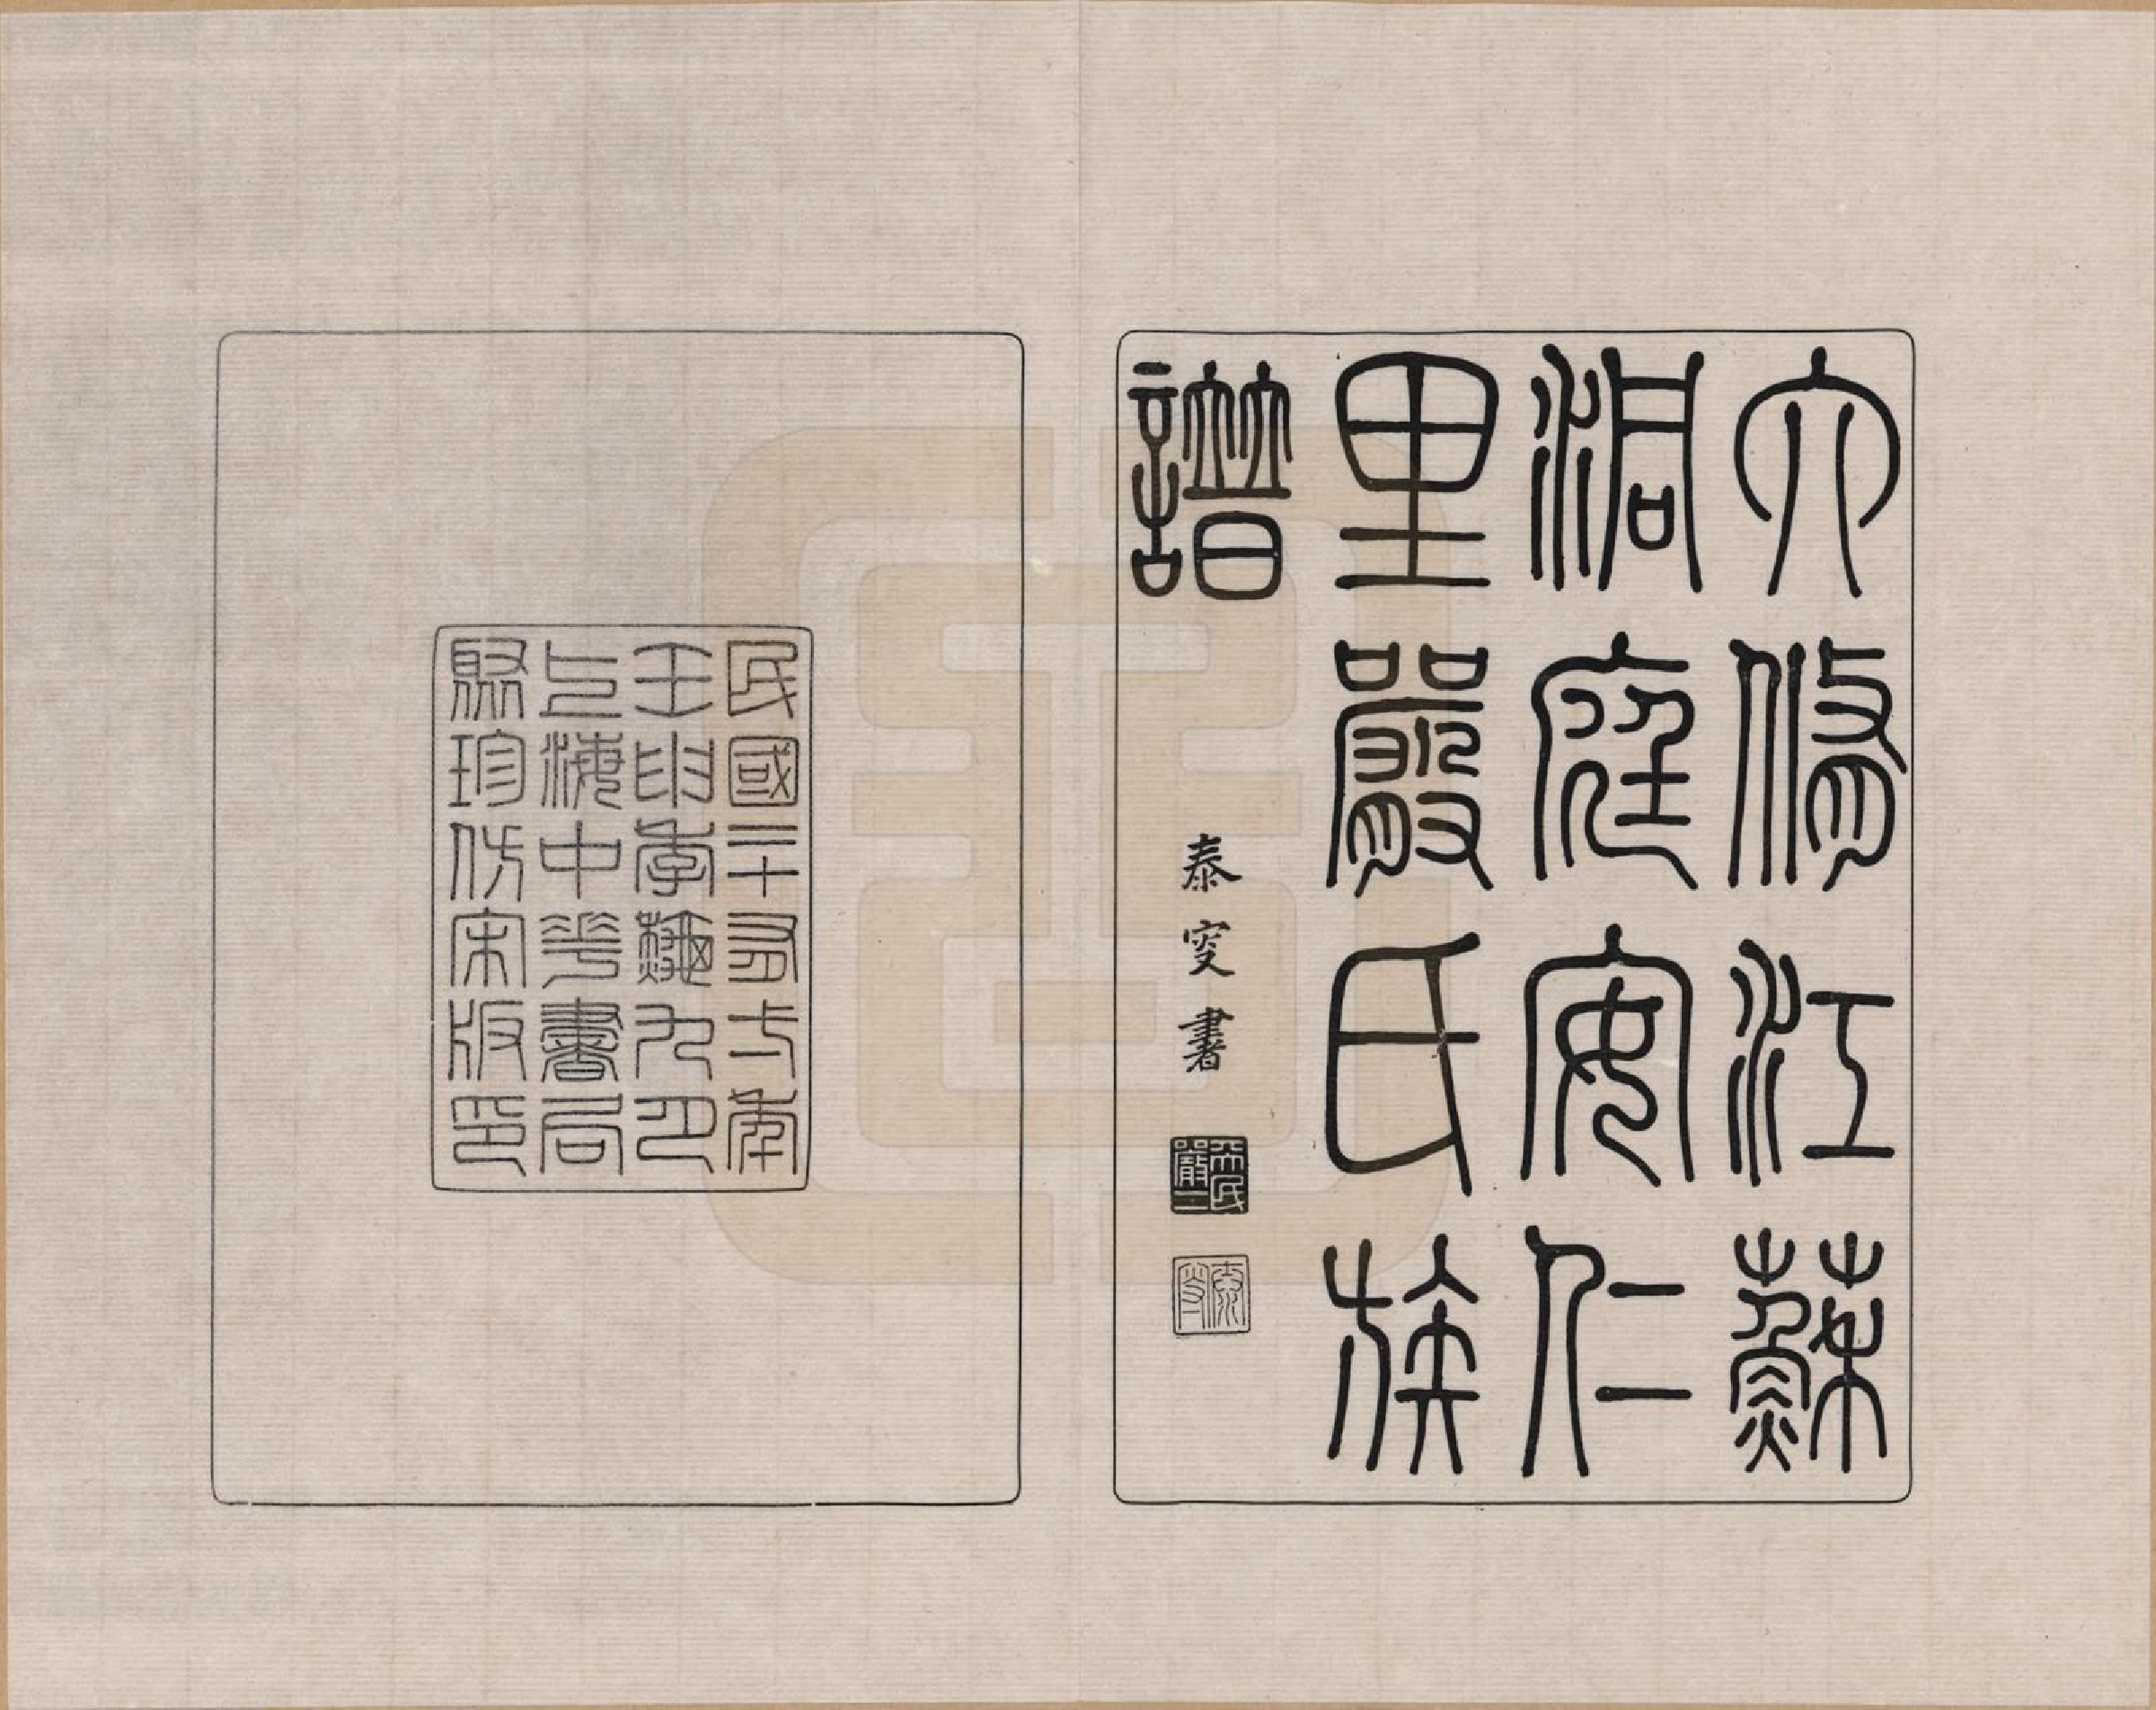 六修江蘇
洞庭安仁
里嚴氏族
譜
泰叜書
民國二十有一年
壬申季秋九月
上海中華書局
聚珍仿宋版印